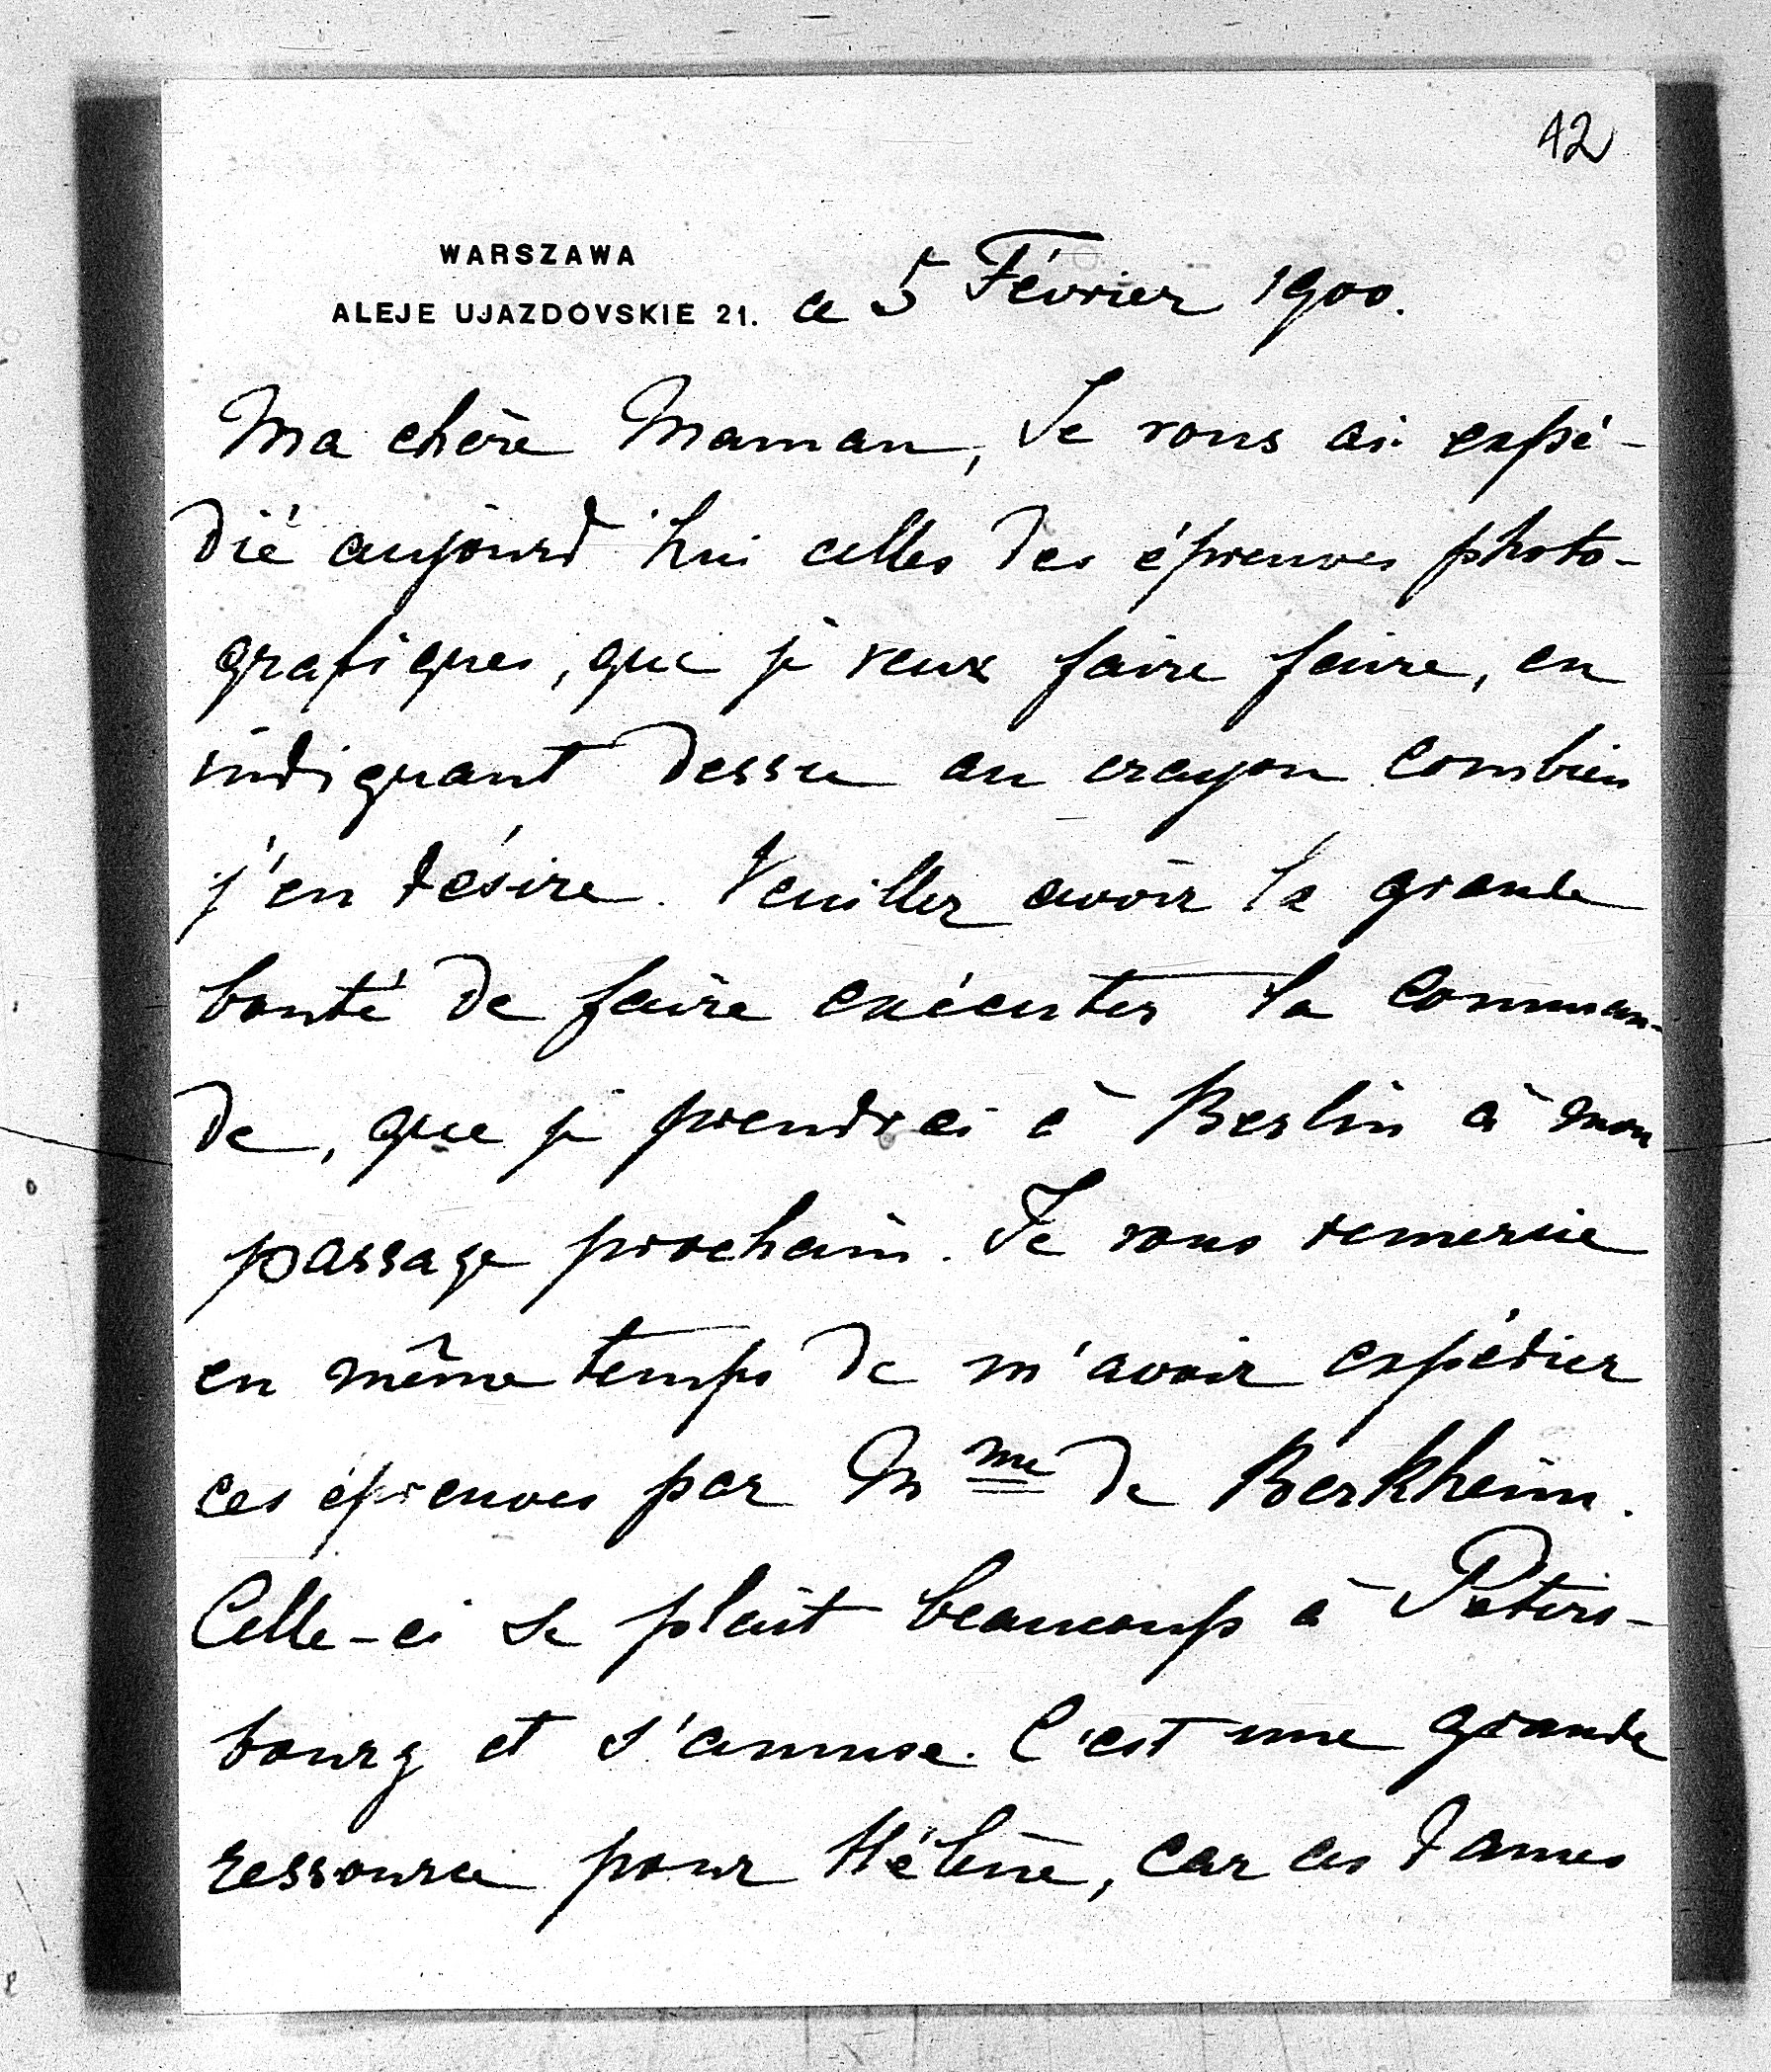 42
WARSZAWA
ALEJE UJAZDOVSKIE 21. ce 5 Février 1900.
Ma chère Maman, Je vous ai expé-
dié aujourd'hui celles des épreuves photo-
grafiques, que je veux faire faire, en
indiquant dessu au crayon combien
j'en désire. Veuillez avoir la grande
bonté de faire exécuter la comman-
de, que je prendrai à Berlin à mon
passage prochain. Je vous remercie
en même temps de m'avoir expédier
ces épreuves par Mme de Berkheim.
Celle-ci se plait beaucoup à Peters-
bourg et s'amuse. C'est une grande
ressource pour Hélène, car ces dames